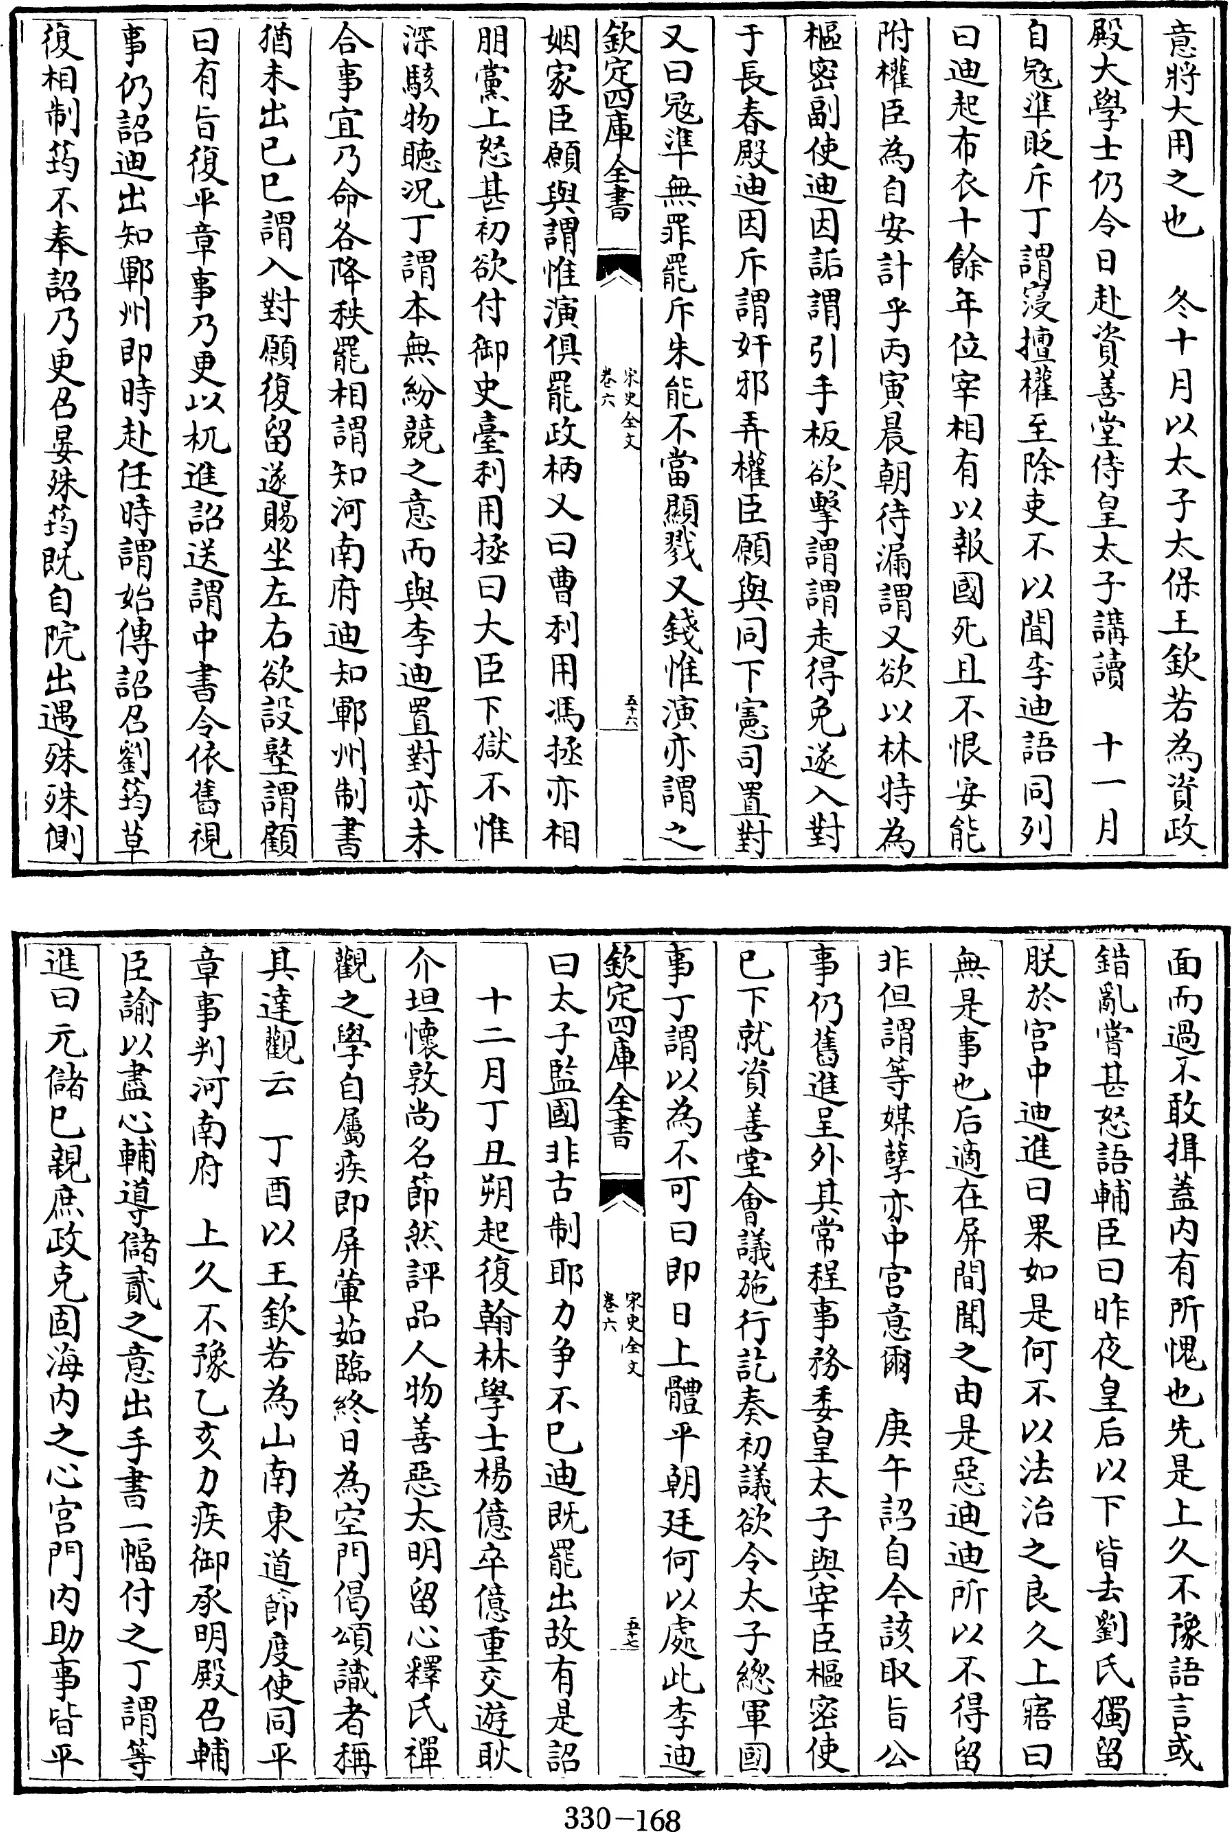 意將大用之也　冬十月以太子太保王欽若為資政
殿大學士仍令日赴資善堂侍皇太子講讀　十一月
自㓂準貶斥丁謂寖擅權至除吏不以聞李迪語同列
曰迪起布衣十餘年位宰相有以報國死且不恨安能
附權臣為自安計乎丙寅晨朝待漏謂又欲以林特為
樞密副使迪因詬謂引手板欲擊謂謂走得免遂入對
于長春殿迪因斥謂奸邪弄權臣願與同下憲司置對
又曰㓂準無罪罷斥朱能不當顯戮又錢惟演亦謂之
欽定四庫全書
宋史全文
卷六
五十六
姻家臣願與謂惟演俱罷政柄又曰曹利用馮拯亦相
朋黨上怒甚初欲付御史臺利用拯曰大臣下獄不惟
深駭物聽況丁謂本無紛競之意而與李迪置對亦未
合事宜乃命各降秩罷相謂知河南府迪知鄆州制書
猶未出己巳謂入對願復留遂賜坐左右欲設墪謂顧
曰有旨復平章事乃更以杌進詔送謂中書令依舊視
事仍詔迪出知鄆州即時赴任時謂始傳詔召劉筠草
復相制筠不奉詔乃更召晏殊筠既自院出遇殊殊側
面而過不敢揖蓋内有所愧也先是上久不豫語言或
錯亂嘗甚怒語輔臣曰昨夜皇后以下皆去劉氏獨留
朕於宫中迪進曰果如是何不以法治之良久上寤曰
無是事也后適在屏間聞之由是惡迪迪所以不得留
非但謂等媒孽亦中宫意爾　庚午詔自今該取旨公
事仍舊進呈外其常程事務委皇太子與宰臣樞密使
已下就資善堂會議施行訖奏初議欲令太子總軍國
事丁謂以為不可曰即日上體平朝廷何以處此李迪
欽定四庫全書
宋史全文
卷六
五十七
曰太子監國非古制耶力争不已迪既罷出故有是詔
十二月丁丑朔起復翰林學士楊億卒億重交遊耿
介坦懷敦尚名節然評品人物善惡太明留心釋氏禪
觀之學自屬疾即屏葷茹臨終日為空門偈頌識者稱
其達觀云　丁酉以王欽若為山南東道節度使同平
章事判河南府　上久不豫乙亥力疾御承明殿召輔
臣諭以盡心輔導儲貳之意出手書一幅付之丁謂等
進曰元儲已親庶政克固海内之心宫門内助事皆平
330-168